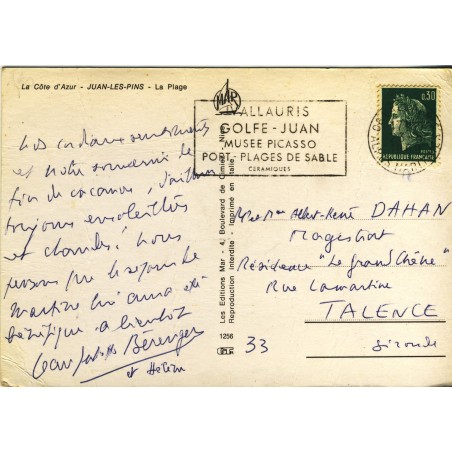 La Côte d'Azur - JUAN-LES-PINS - La Plage
MAR
VALLAURIS
GOLFE-JUAN
MUSEE PICASSO
PORT, PLAGES DE SABLE
CERAMIQUES
0,30
POSTES
REPUBLIQUE FRANÇAISE
et notre souvenir de
fin de vacances, d'ailleurs
toujours ensoleillées
et chaudes! nous
pensons que le séjour de
Martine lui aura été
bénéfique à bientôt
Bérenger
et Hélène
Les Editions Mar - 4, Boulevard de Cimiez - Nice
Reproduction interdite - Imprimé en Italie
1256
Mme Albert-René DAHAN
Magistrat
Résidence "Le Grand Chêne"
Rue Lamartine
TALENCE
33
Gironde